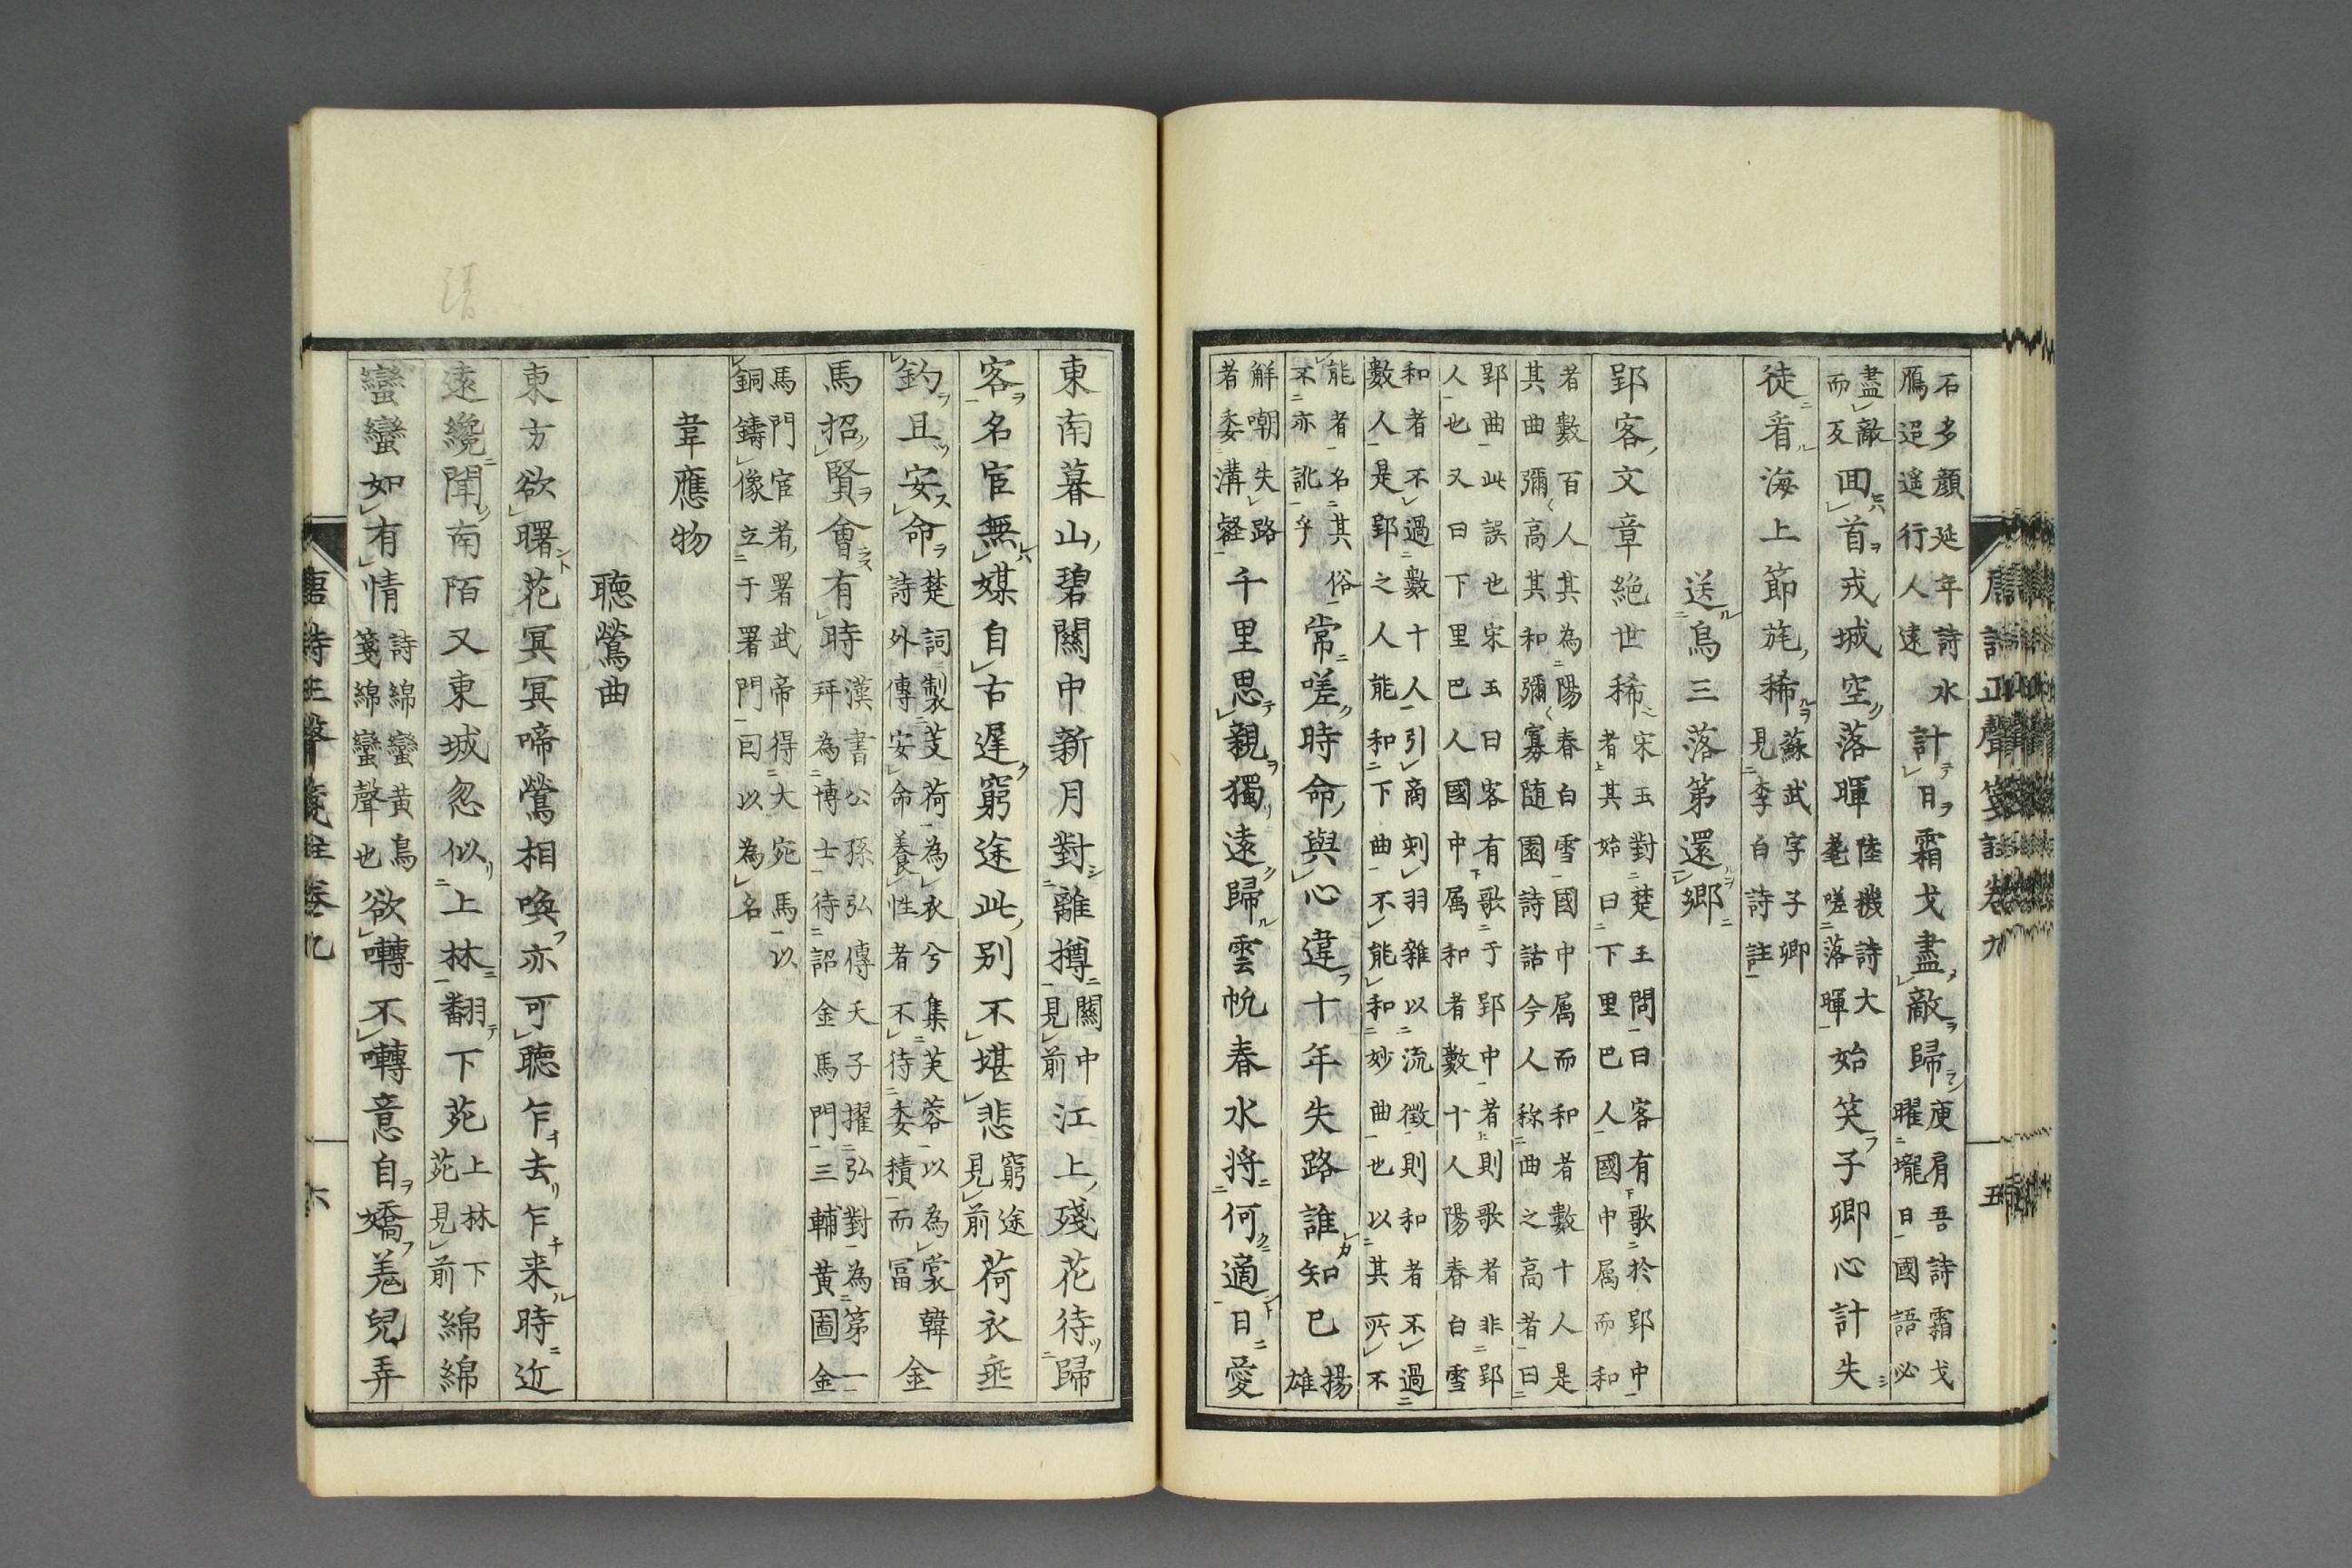 唐詩正聲箋註卷九 五
石多顔延年詩水
鴈迢遥行人遠
計日霜戈盡敵歸
庾肩吾詩霜戈
曜壠日國語必
盡敵
而反
囬首戎城空落暉
陸機詩大
耄嗟落暉
始笑子卿心計失
徒看海上節旄稀
蘇武字子卿
見李白詩註
送鳥三落第還郷
郢客文章絶世稀
宋玉對楚王問曰客有歌於郢中
者其始曰下里巴人國中属而和
者數百人其為陽春白雪國中属而和者數十人是
其曲彌高其和彌寡随園詩話今人称曲之高者曰
郢曲此誤也宋玉曰客有歌于郢中者則歌者非郢
人也又曰下里巴人國中属和者數十人陽春白雪
和者不過數十人引商刻羽雜以流徴則和者不過
數人是郢之人能和下曲不能和妙曲也以其所不
能者名其俗
不亦訛乎
常嗟時命與心違十年失路誰知已
揚
雄
解嘲失路
者委溝壑
千里思親獨遠歸雲帆春水将何適日愛
東南暮山碧關中新月對離樽
關中
見前
江上殘花待歸
客名宦無媒自古遲窮途此别不堪悲
窮途
見前
荷衣埀
釣且安命
楚詞製芰荷為衣兮集芙蓉以為裳韓
詩外傳安命養性者不待委積而冨
金
馬招賢會有時
漢書公孫弘傳天子擢弘對為第一
拜為博士待詔金馬門三輔黄圖金
馬門宦者署武帝得大宛馬以
銅鑄像立于署門因以為名
韋應物
聽鶯曲
東方欲曙花冥冥啼鶯相喚亦可聽乍去乍来時近
遠纔聞南陌又東城忽似上林翻下苑
上林下
苑見前
綿綿
蠻蠻如有情
詩綿蠻黄鳥
箋綿蠻聲也
欲囀不囀意自嬌羗兒弄
唐詩正聲箋註卷九 六
清